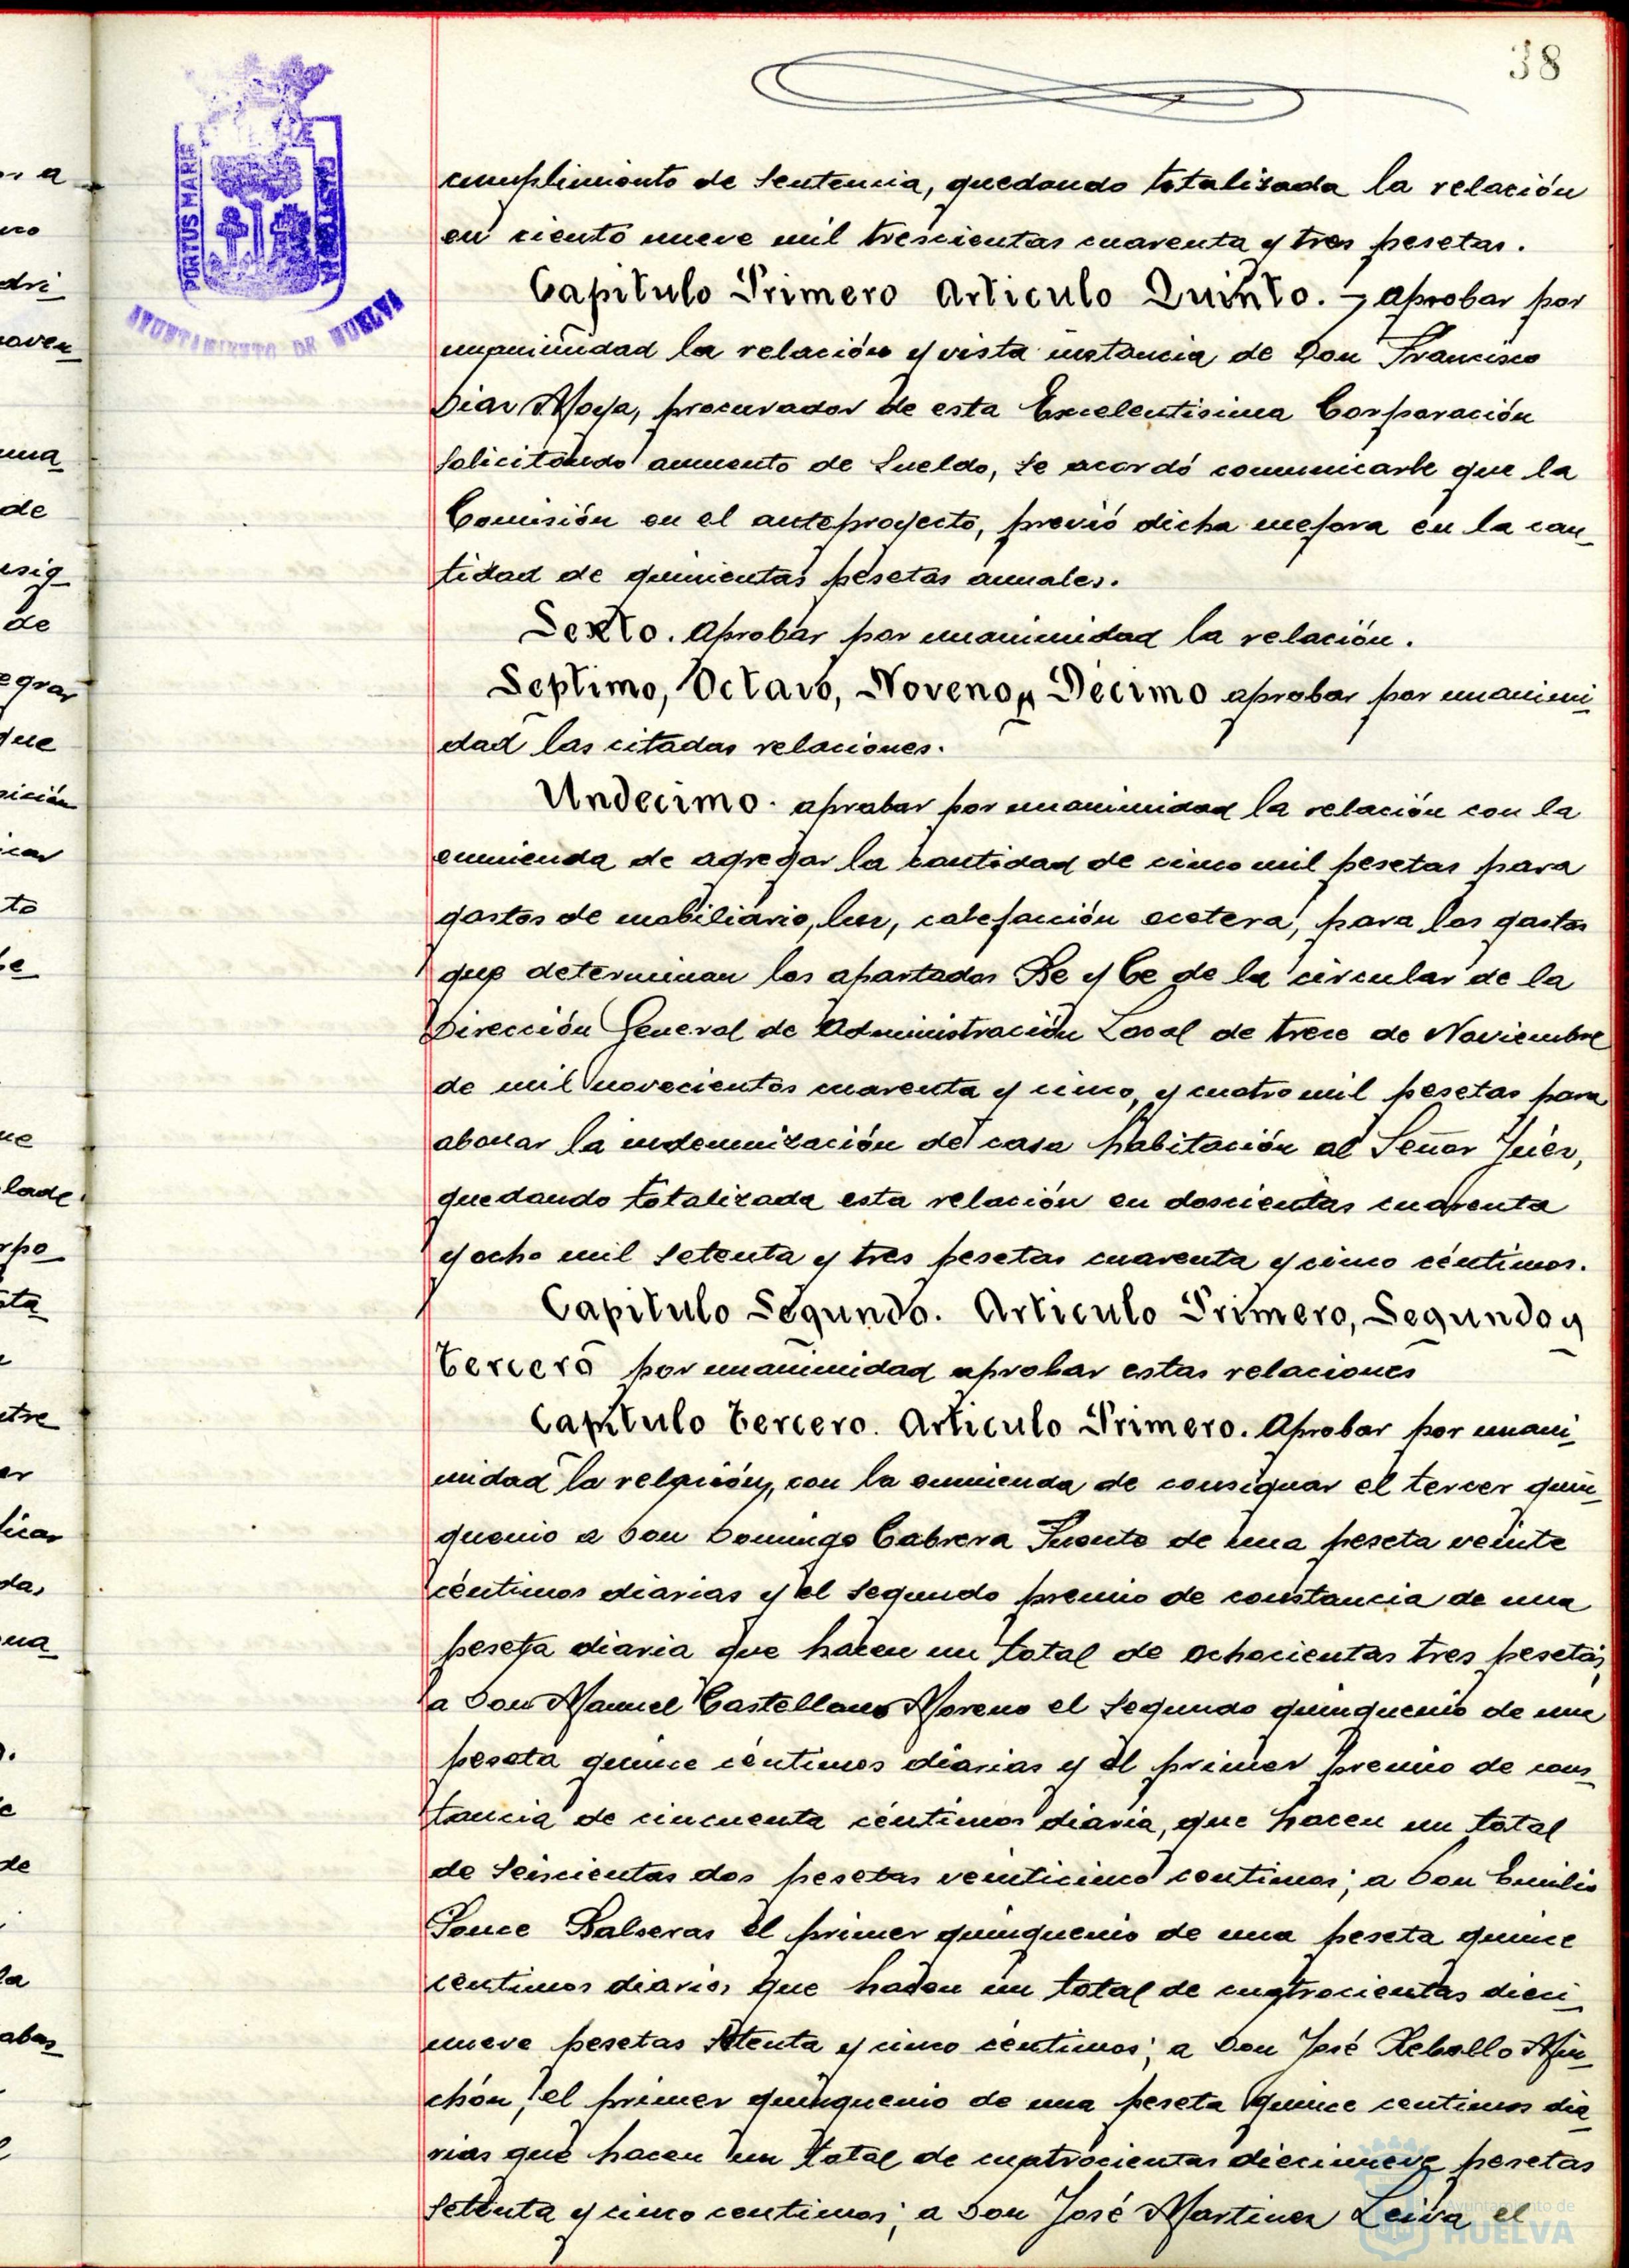 38
PORTUS MARIS
ET
CUSTODIA
AYUNTAMIENTO DE HUELVA
cumplimiento de sentencia, quedando totalizada la relación
en ciento nueve mil trescientas cuarenta y tres pesetas.
Capitulo Primero Articulo Quinto. - aprobar por
unanimidad la relación y vista instancia de Don Francisco
Diaz Moya, procurador de esta Excelentisima Corporación
solicitando aumento de sueldo, se acordó comunicarle que la
Comisión en el anteproyecto, previó dicha mejora en la can_
tidad de quinientas pesetas anuales.
Sexto. aprobar por unanimidad la relación.
Septimo, Octavo, Noveno y Décimo aprobar por unanimi_
dad las citadas relaciones.
Undecimo. aprobar por unanimidad la relación con la
enmienda de agregar la cantidad de cinco mil pesetas para
gastos de mobiliario, luz, calefacción ecetera, para los gastos
que determinan los apartados Be y Ce de la circular de la
Dirección General de Administración Local de trece de Noviembre
de mil novecientos cuarenta y cinco, y cuatro mil pesetas para
abonar la indemnización de casa habitación al Señor Juez,
quedando totalizada esta relación en doscientas cuarenta
y ocho mil setenta y tres pesetas cuarenta y cinco céntimos.
Capitulo Segundo. Articulo Primero, Segundo y
Tercero por unanimidad aprobar estas relaciones
Capitulo Tercero. Articulo Primero. Aprobar por unani_
midad la relación, con la enmienda de consignar el tercer quin_
quenio a Don Domingo Cabrera Puente de una peseta veinte
céntimos diarias y el segundo premio de constancia de una
peseta diaria que hacen un total de ochocientas tres pesetas,
a Don Manuel Castellano Moreno el segundo quinquenio de una
peseta quince céntimos diarias y el primer premio de cons_
tancia de cincuenta céntimos diaria, que hacen un total
de seiscientas dos pesetas veinticinco centimos; a Don Emilio
Ponce Balseras el primer quinquenio de una peseta quince
céntimos diarios que hacen un total de cuatrocientas dieci_
nueve pesetas setenta y cinco céntimos; a Don José Rebollo Min_
chón, el primer quinquenio de una peseta quince centimos dia_
rias que hacen un total de cuatrocientas diecinueve pesetas
setenta y cinco centimos; a Don José Martinez Leiva el
Ayuntamiento de
HUELVA